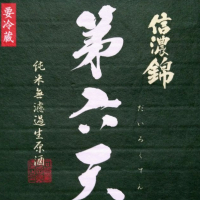 要冷蔵
信濃錦
第六天
だいろくてん
純米無濾過生原酒